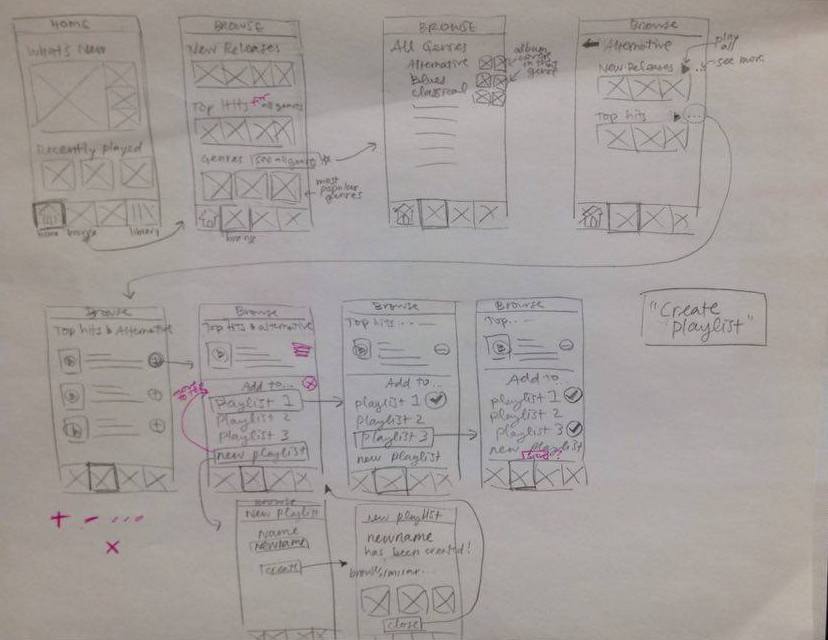 HOME
What's New
Recently played
home browse library
BROWSE
New Releases
Top Hits for all genres
Genres (see all genres)
most popular genres
browse
BROWSE
All Genres
Alternative
Blues
Classical
album covers in that genre
Browse
Alternative
New Releases
play all
see more
Top hits
Browse
Top hits & Alternative
Browse
Top hits & alternative
Add to...
playlist 1
playlist 2
playlist 3
new playlist
Browse
Top hits...
Add to...
playlist 1
playlist 2
playlist 3
new playlist
Browse
Top...
Add to
playlist 1
playlist 2
playlist 3
new playlist
"Create playlist"
Browse
New Playlist
Name
Newname
create
new playlist
newname
has been created!
browse similar...
close